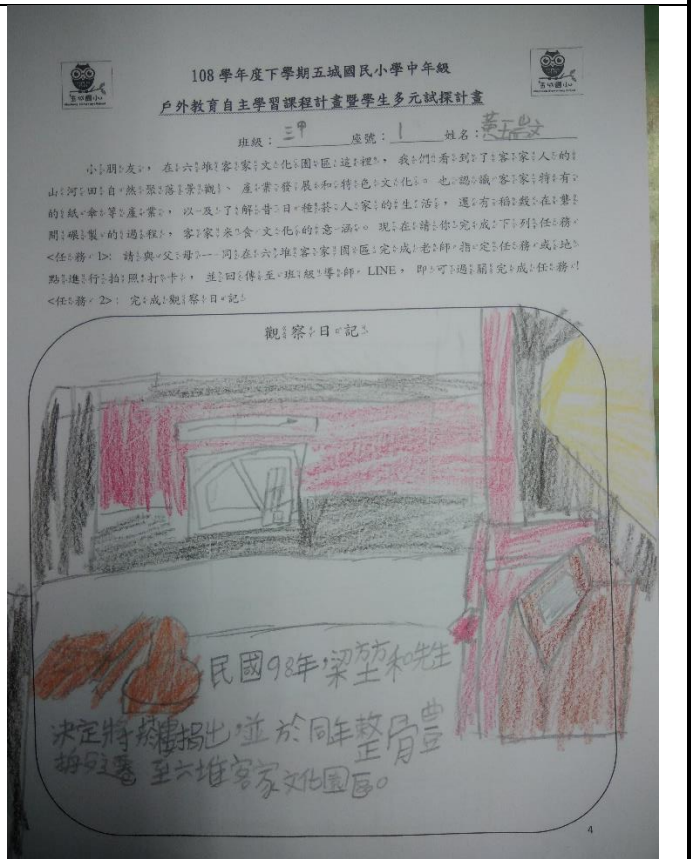 五城國小
五城國小
108 學年度下學期五城國民小學中年級
戶外教育自主學習課程計畫暨學生多元試探計畫
班級：三甲 座號：1 姓名：黃
小朋友，在六堆客家文化園區這裡，我們看到了客家人的
山河田自然聚落景觀、產業發展和特色文化。也認識客家特有
的紙傘等產業，以及了解昔日種菸人家的生活，還有稻穀在礱
間碾製的過程，客家米食文化的意涵。現在請你完成下列任務
<任務 1>：請與父母一同在六堆客家園區完成老師指定任務或地
點進行拍照打卡，並回傳至班級導師 LINE，即可過關完成任務!
<任務 2>：完成觀察日記
觀察日記
民國98年，梁堃和先生
決定將菸樓捐出，並於同年整骨豊
拆遷至六堆客家文化園區。
4